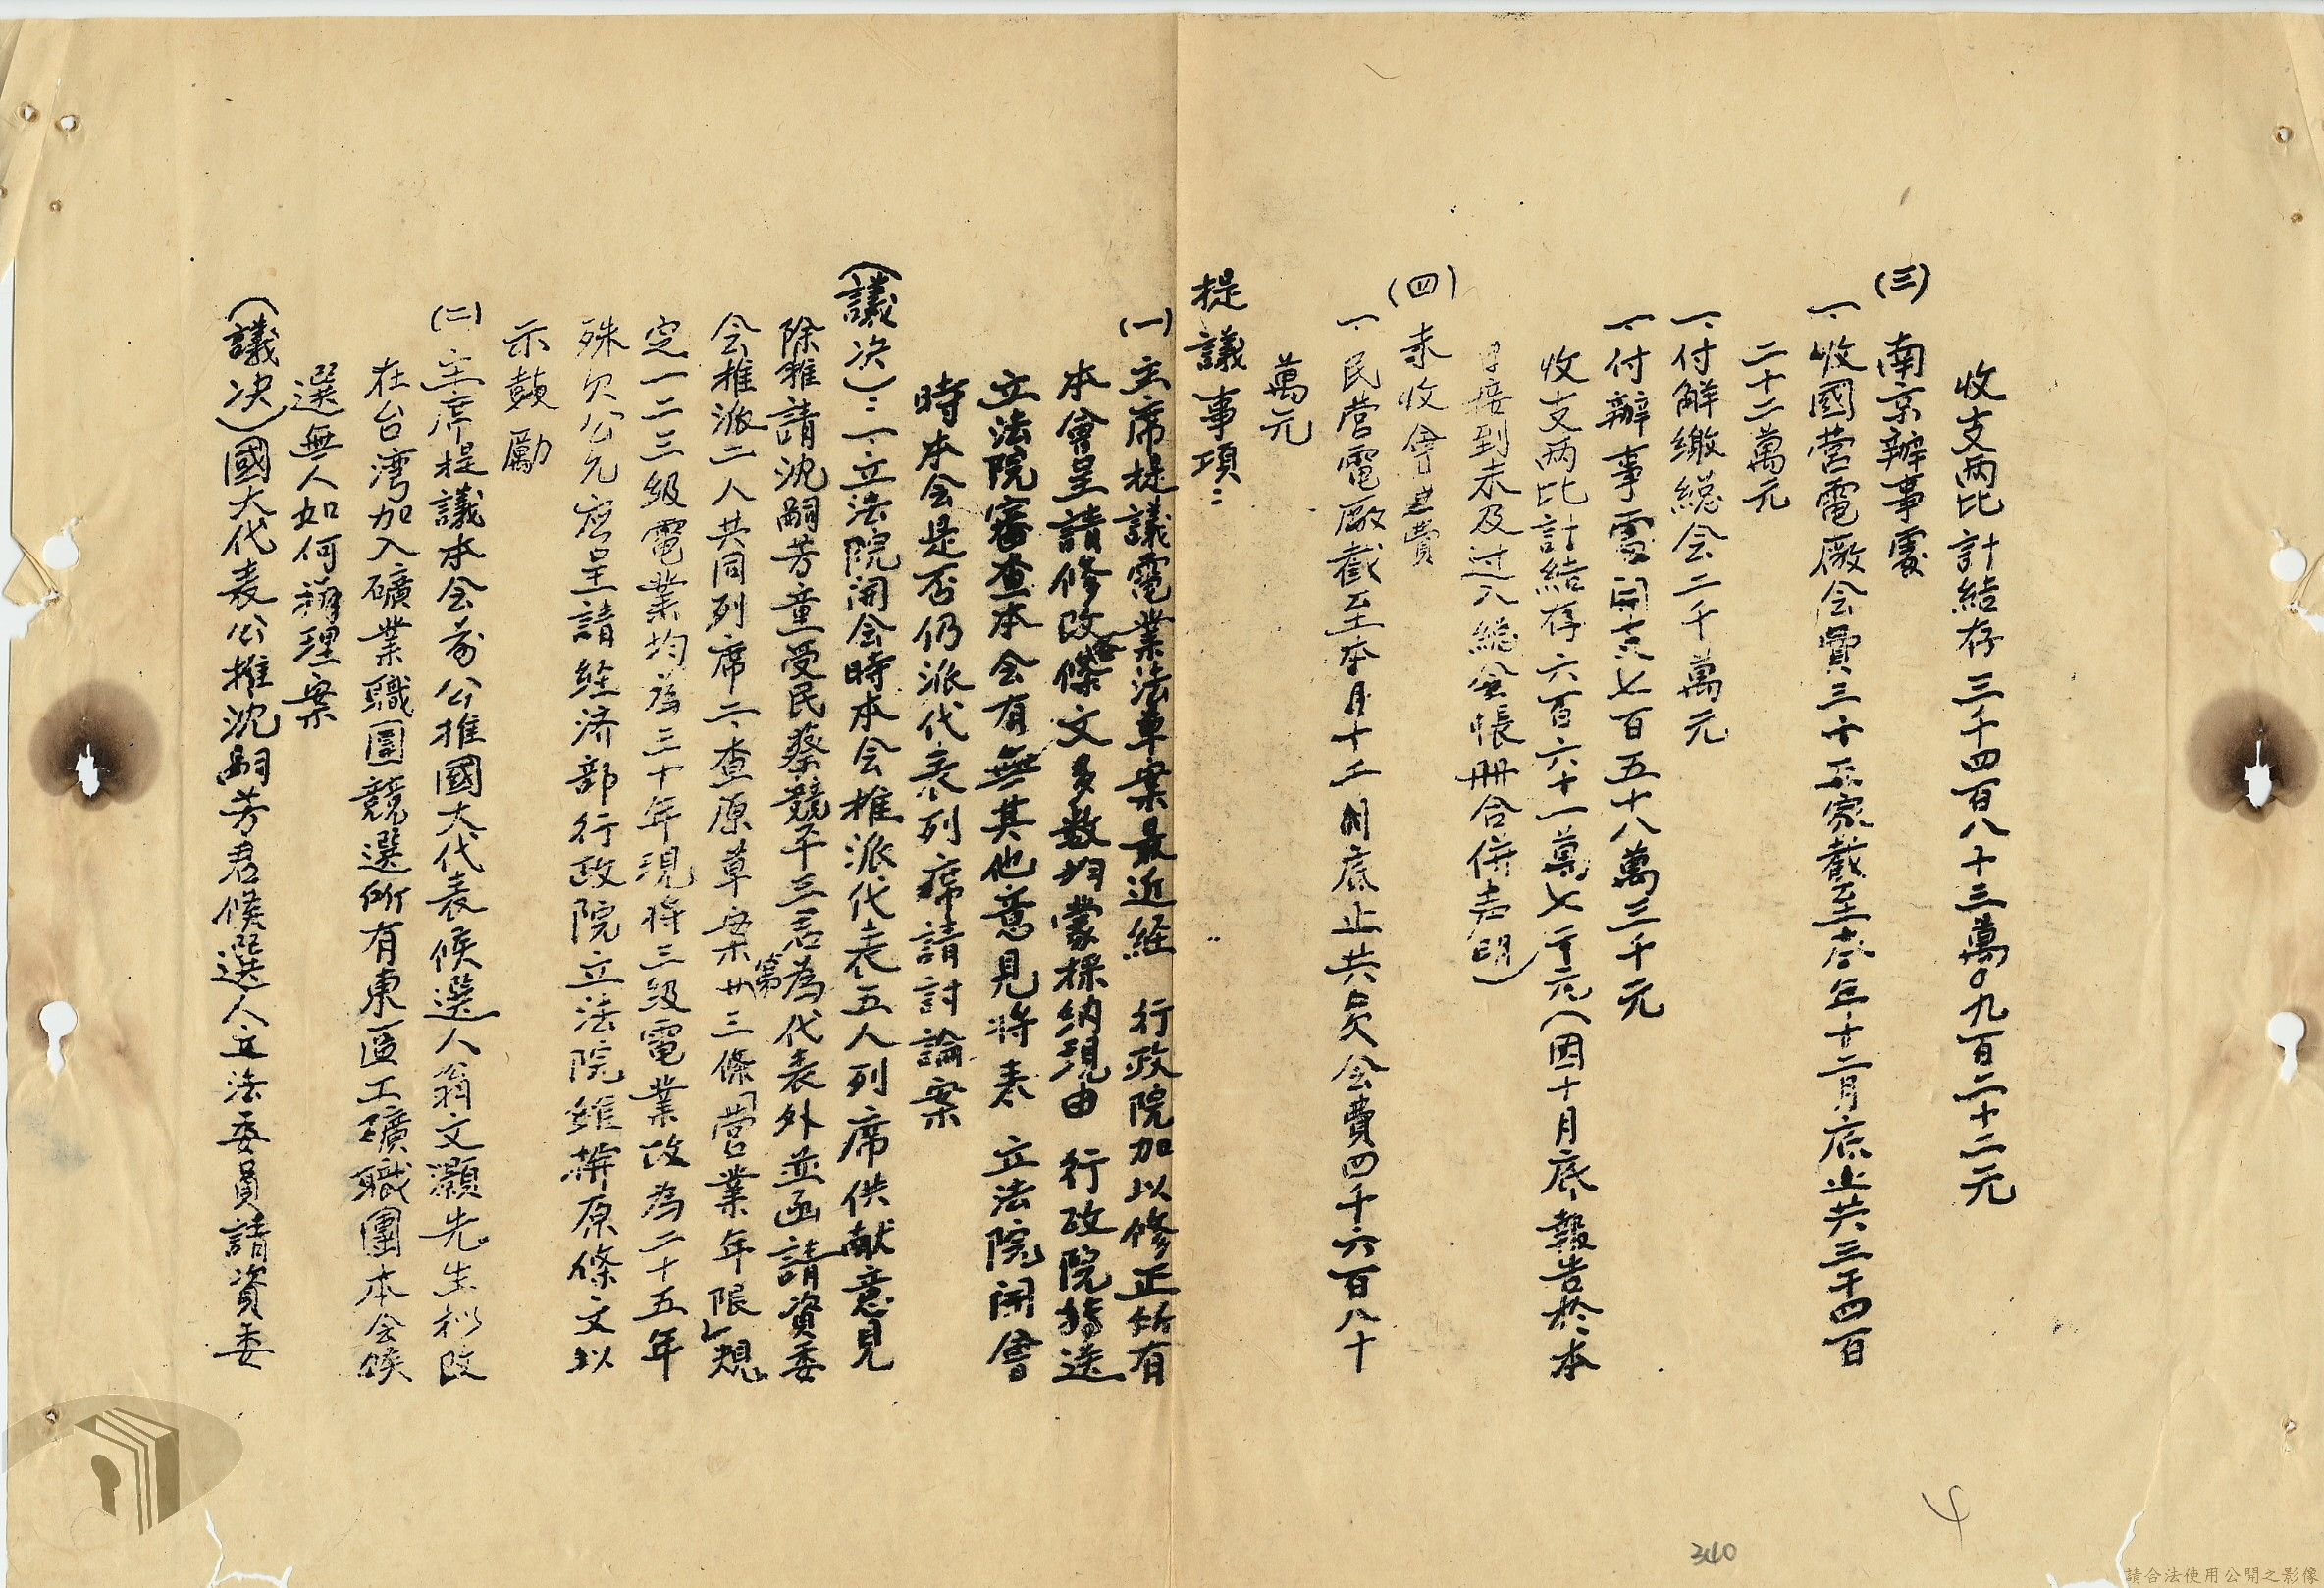 收支兩比計結存三千四百八十三萬0九百二十二元
(三)南京辦事處
一、收國营電廠会費三十五家截至卅六年十二月底止共三千四百
二十二萬元
一、付解繳總会二千萬元
一、付辦事處開支七百五十八萬三千元
收支兩比計結存六百六十一萬七千元(因十月底報告於本
月接到未及过入總会帳冊合併声明)
(四)未收會費
一、民营電廠截至本月十二月底止共欠会費四千六百八十
萬元
提議事項：
(一)主席提議電業法草案最近経 行政院加以修正所有
本會呈請修改各條文多数均蒙採納現由 行政院移送
立法院審查本会有無其他意見將来 立法院開會
時本会是否仍派代表列席請討論案
(議決)：一、立法院開会時本会推派代表五人列席供献意見
除推請沈嗣芳童受民蔡競平三君為代表外並函請資委
会推派二人共同列席二、查原草案第廿三條「营業年限」規
定一二三級電業均為三十年現将三級電業改為二十五年
殊欠公允应呈請経济部行政院立法院維持原條文以
示鼓勵
(二)主席提議本会前公推國大代表候選人翁文灝先生拟改
在台湾加入礦業職團競選所有東區工礦職團本会候
選無人如何辦理案
(議決)國大代表公推沈嗣芳君候選人立法委員請資委
4
340
請合法使用公開之影像